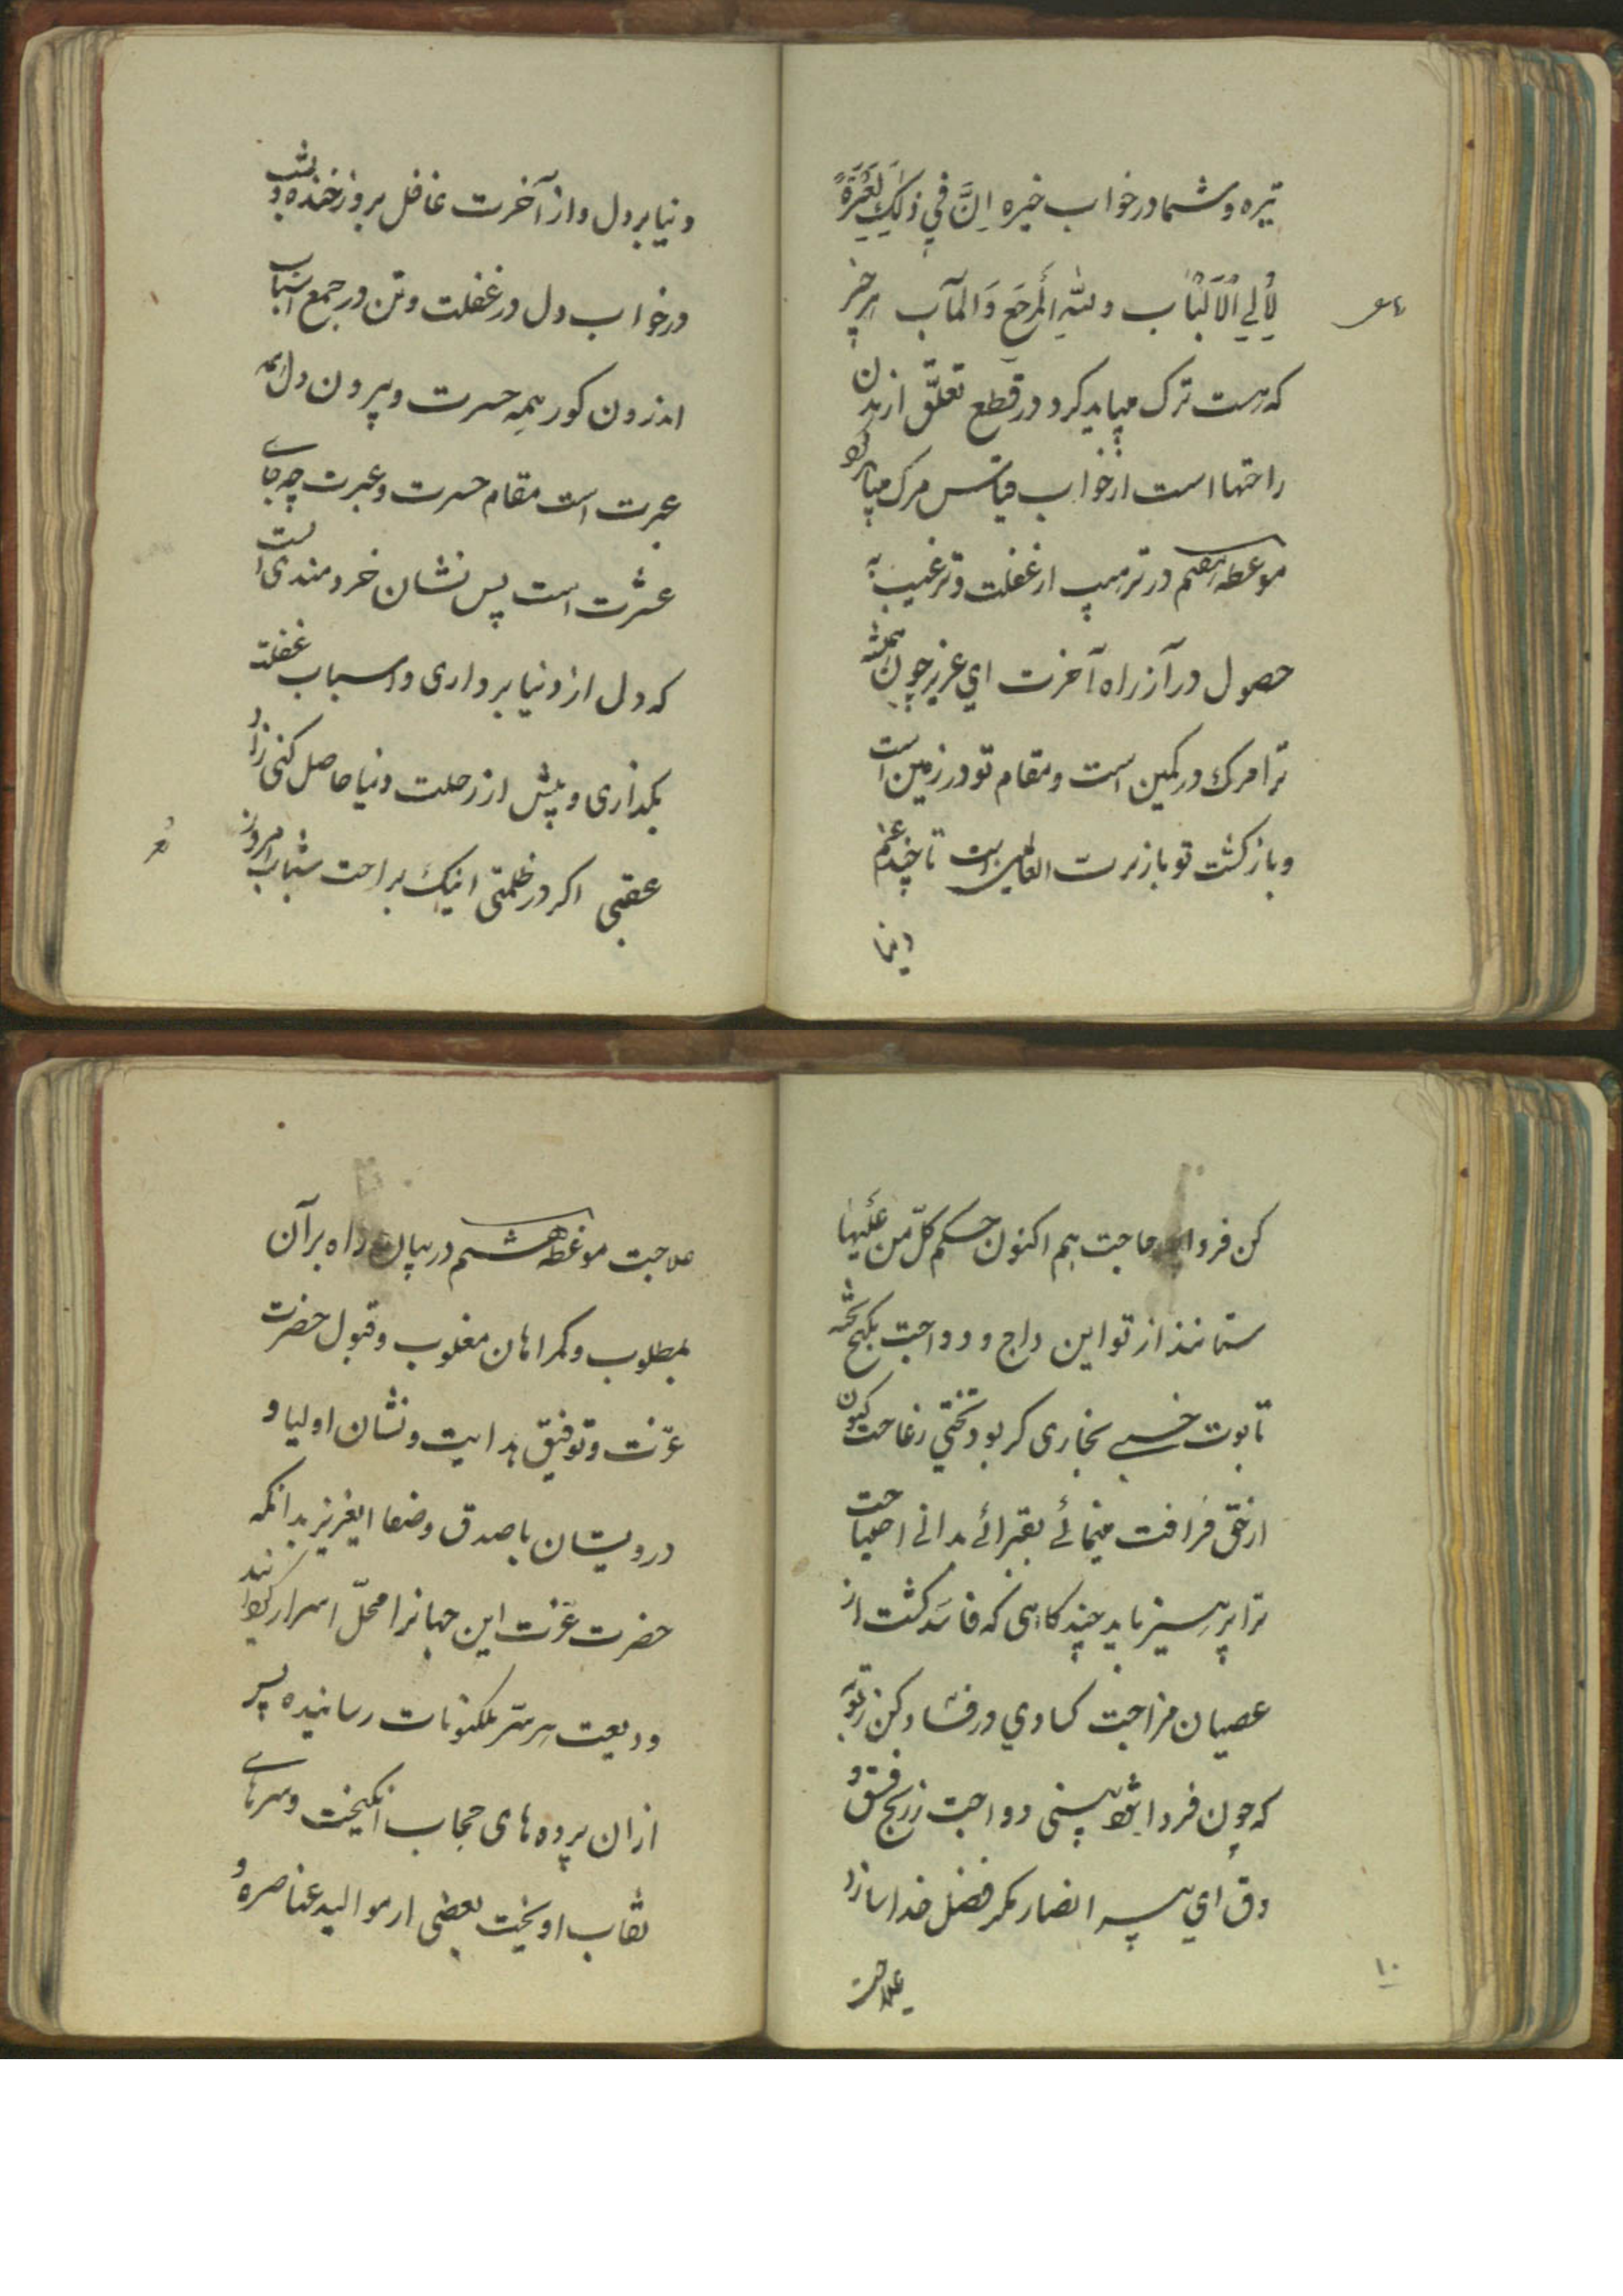 تیره و شما در خواب خیره اِنَّ فِي ذٰلِكَ لَعِبْرَةً
لِاُولِي الْاَلْبَاب وللّٰهِ الْمَرجَعِ وَالمآب هر چیز
که هست ترک میباید کرد در قطع تعلّق از بدن
راحتها است از خواب قیاس مرک میباید کرد
موعظه هفتم در ترهیب از غفلت و ترغیب به
حصول در آز راه آخرت اي عزیز چون همیشه
ترا مرك در کمین است و مقام تو در زمین است
و باز کشت تو باز برت العالمین است تا چند غم
دنیا
دنیا بر دل و از آخرت غافل بروز خنده و بشب
در خواب دل در غفلت و تن در جمع اسباب
اندرون کور همه حسرت و بیرون دل همه
عبرت است مقام حسرت و عبرت چه جاے
عشرت است پس نشان خردمندی است
که دل از دنیا برداری و اسباب غفلت
بکذاری و پیش از رحلت دنیا حاصل کنی زاد
عقبی اکر در ظلمتی اینك براحت شتاب امروز
کن فردا حاجت هم اکنون حکم کلّ من عَلَیها
ستانند از تو این داج و دواجت بکنج تخته
تابوت خسبے بخاری کر بود تختي زعاجت کنون
از خق فراقت مینمائے بقبرائے بدانے احتیاجت
ترا پرهیز باید چند کاهی که فاسد کشت از
عصیان مزاجت کسادي در فساد کن ز توبه
که چون فردا بینی رواجت ز رنج فسق و
دق اي پیر انصار مکر فضل خدا سازد
علاجت
۱۰
علاجت موعظه هشتم در بیان راه برآن
بمطلوب و کمراهان مغلوب و قبول حضرت
عزّت و توفیق هدایت و نشان اولیا و
درویشان باصدق و صفا ایعزیز بدانکه
حضرت عزّت این جهانرا محلّ اسرار کردانند
ودیعت هر سرّ بمکنونات رسانیده پس
ازان پرده های حجاب انکیخت و سرهاے
نقاب اویخت بعضی از موالید عناصره و